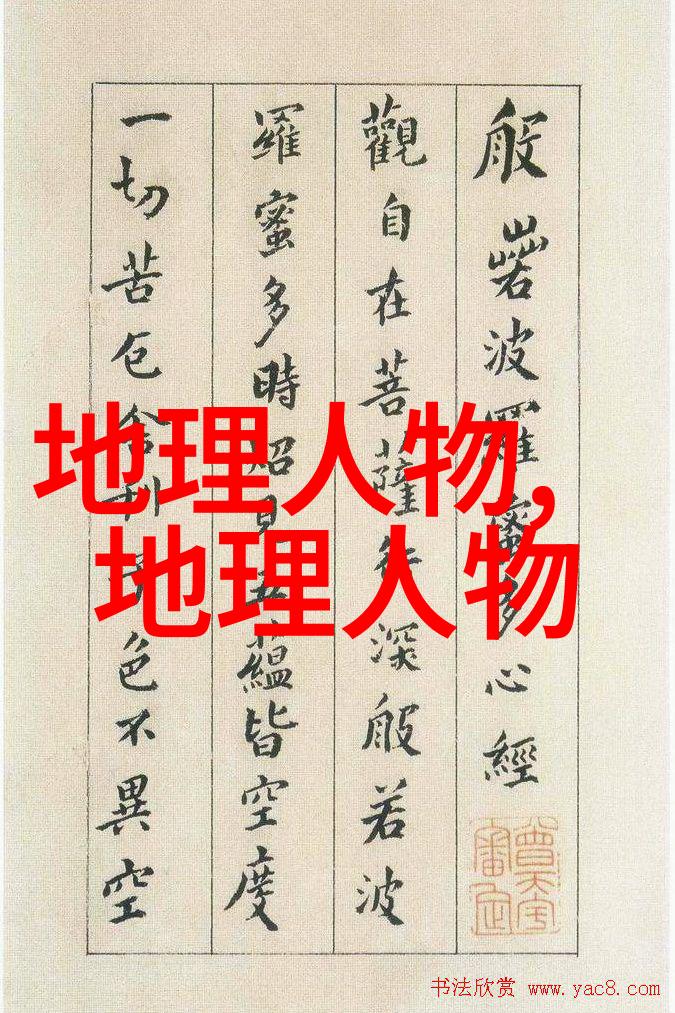 般若波羅蜜多心經
觀自在菩薩行深般若波
羅蜜多時照見五蘊皆空度
一切苦厄舍利子色不異空
地理人物,
地理人物
书法欣赏 www.yac8.com